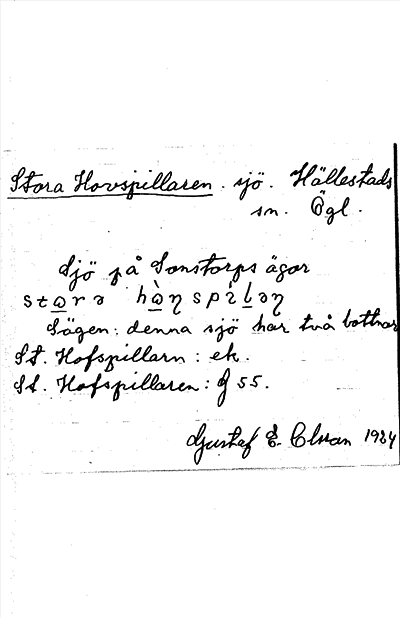 Stora Hovspillaren. sjö. Hällestads
sn. Ögl.
Sjö på Sonstorps ägor
Sägen: denna sjö har två bottnar
St. Hofspillarn: ek.
St. Hofspillaren: G 55.
Gustaf E. Clman 1934